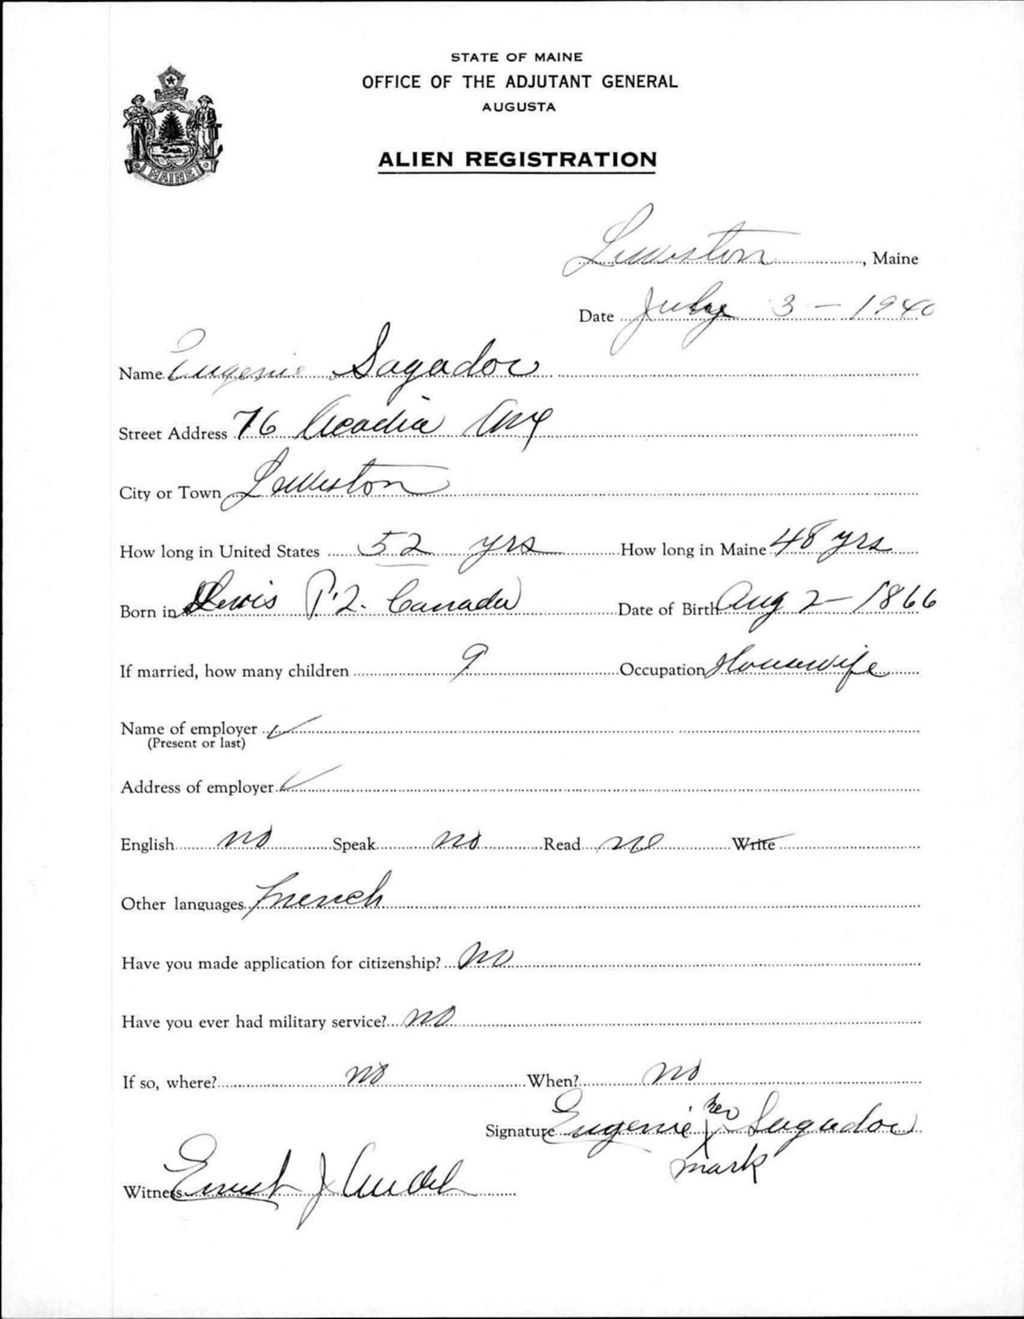 STATE OF MAINE
OFFICE OF THE ADJUTANT GENERAL
AUGUSTA
ALIEN REGISTRATION
MAINE
Lewiston, Maine
Date July 3 - 1940
Name Eugenie Sagadov
Street Address 76 Acadia Ave
City or Town Lewiston
How long in United States 52 yrs How long in Maine 48 yrs
Born in Lewis P.Q. Canada Date of Birth Aug 2 - 1866
If married, how many children 9 Occupation Housewife
Name of employer ✓
(Present or last)
Address of employer ✓
English no Speak no Read no Write
Other languages French
Have you made application for citizenship? No
Have you ever had military service? no
If so, where? no When? no
Signature Eugenie her X Sagadov
mark
Witness Ernest J